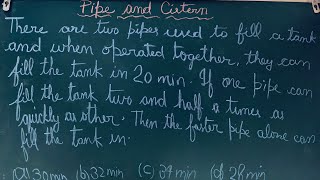 Pipe and Cistern
There are two pipes used to fill a tank
and when operated together, they can
fill the tank in 20 min. If one pipe can
fill the tank two and half a times as
quickly as other. Then the faster pipe alone can
fill the tank in.
(a) 30min (b) 32 min (c) 34 min (d) 28 min